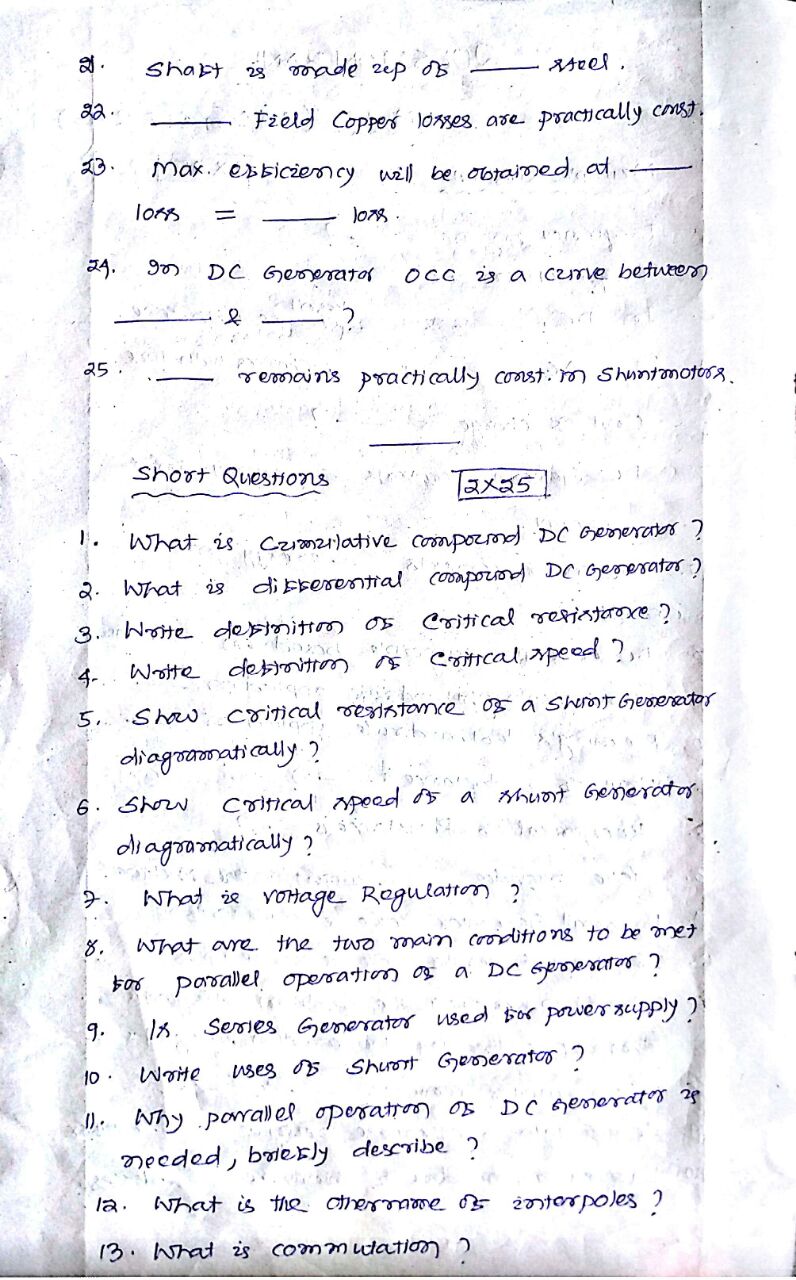 21. Shaft is made up of ____ steel.
22. ____ Field Copper losses are practically const.
23. Max. efficiency will be obtained at ____
loss = ____ loss.
24. In DC Generator OCC is a curve between
____ & ____ ?
25. ____ remains practically const. in Shuntmotors.
Short Questions 2x25
1. What is Cumulative compound DC Generator ?
2. What is differential compound DC Generator ?
3. Write definition of Critical resistance ?
4. Write definition of Critical speed ?
5. Show critical resistance of a shunt Generator
diagramatically ?
6. Show Critical speed of a shunt Generator
diagramatically ?
7. What is voltage Regulation ?
8. What are the two main conditions to be met
for parallel operation of a DC Generator ?
9. Is Series Generator used for power supply ?
10. Write uses of Shunt Generator ?
11. Why parallel operation of DC Generator is
needed, briefly describe ?
12. What is the othername of interpoles ?
13. What is commutation ?